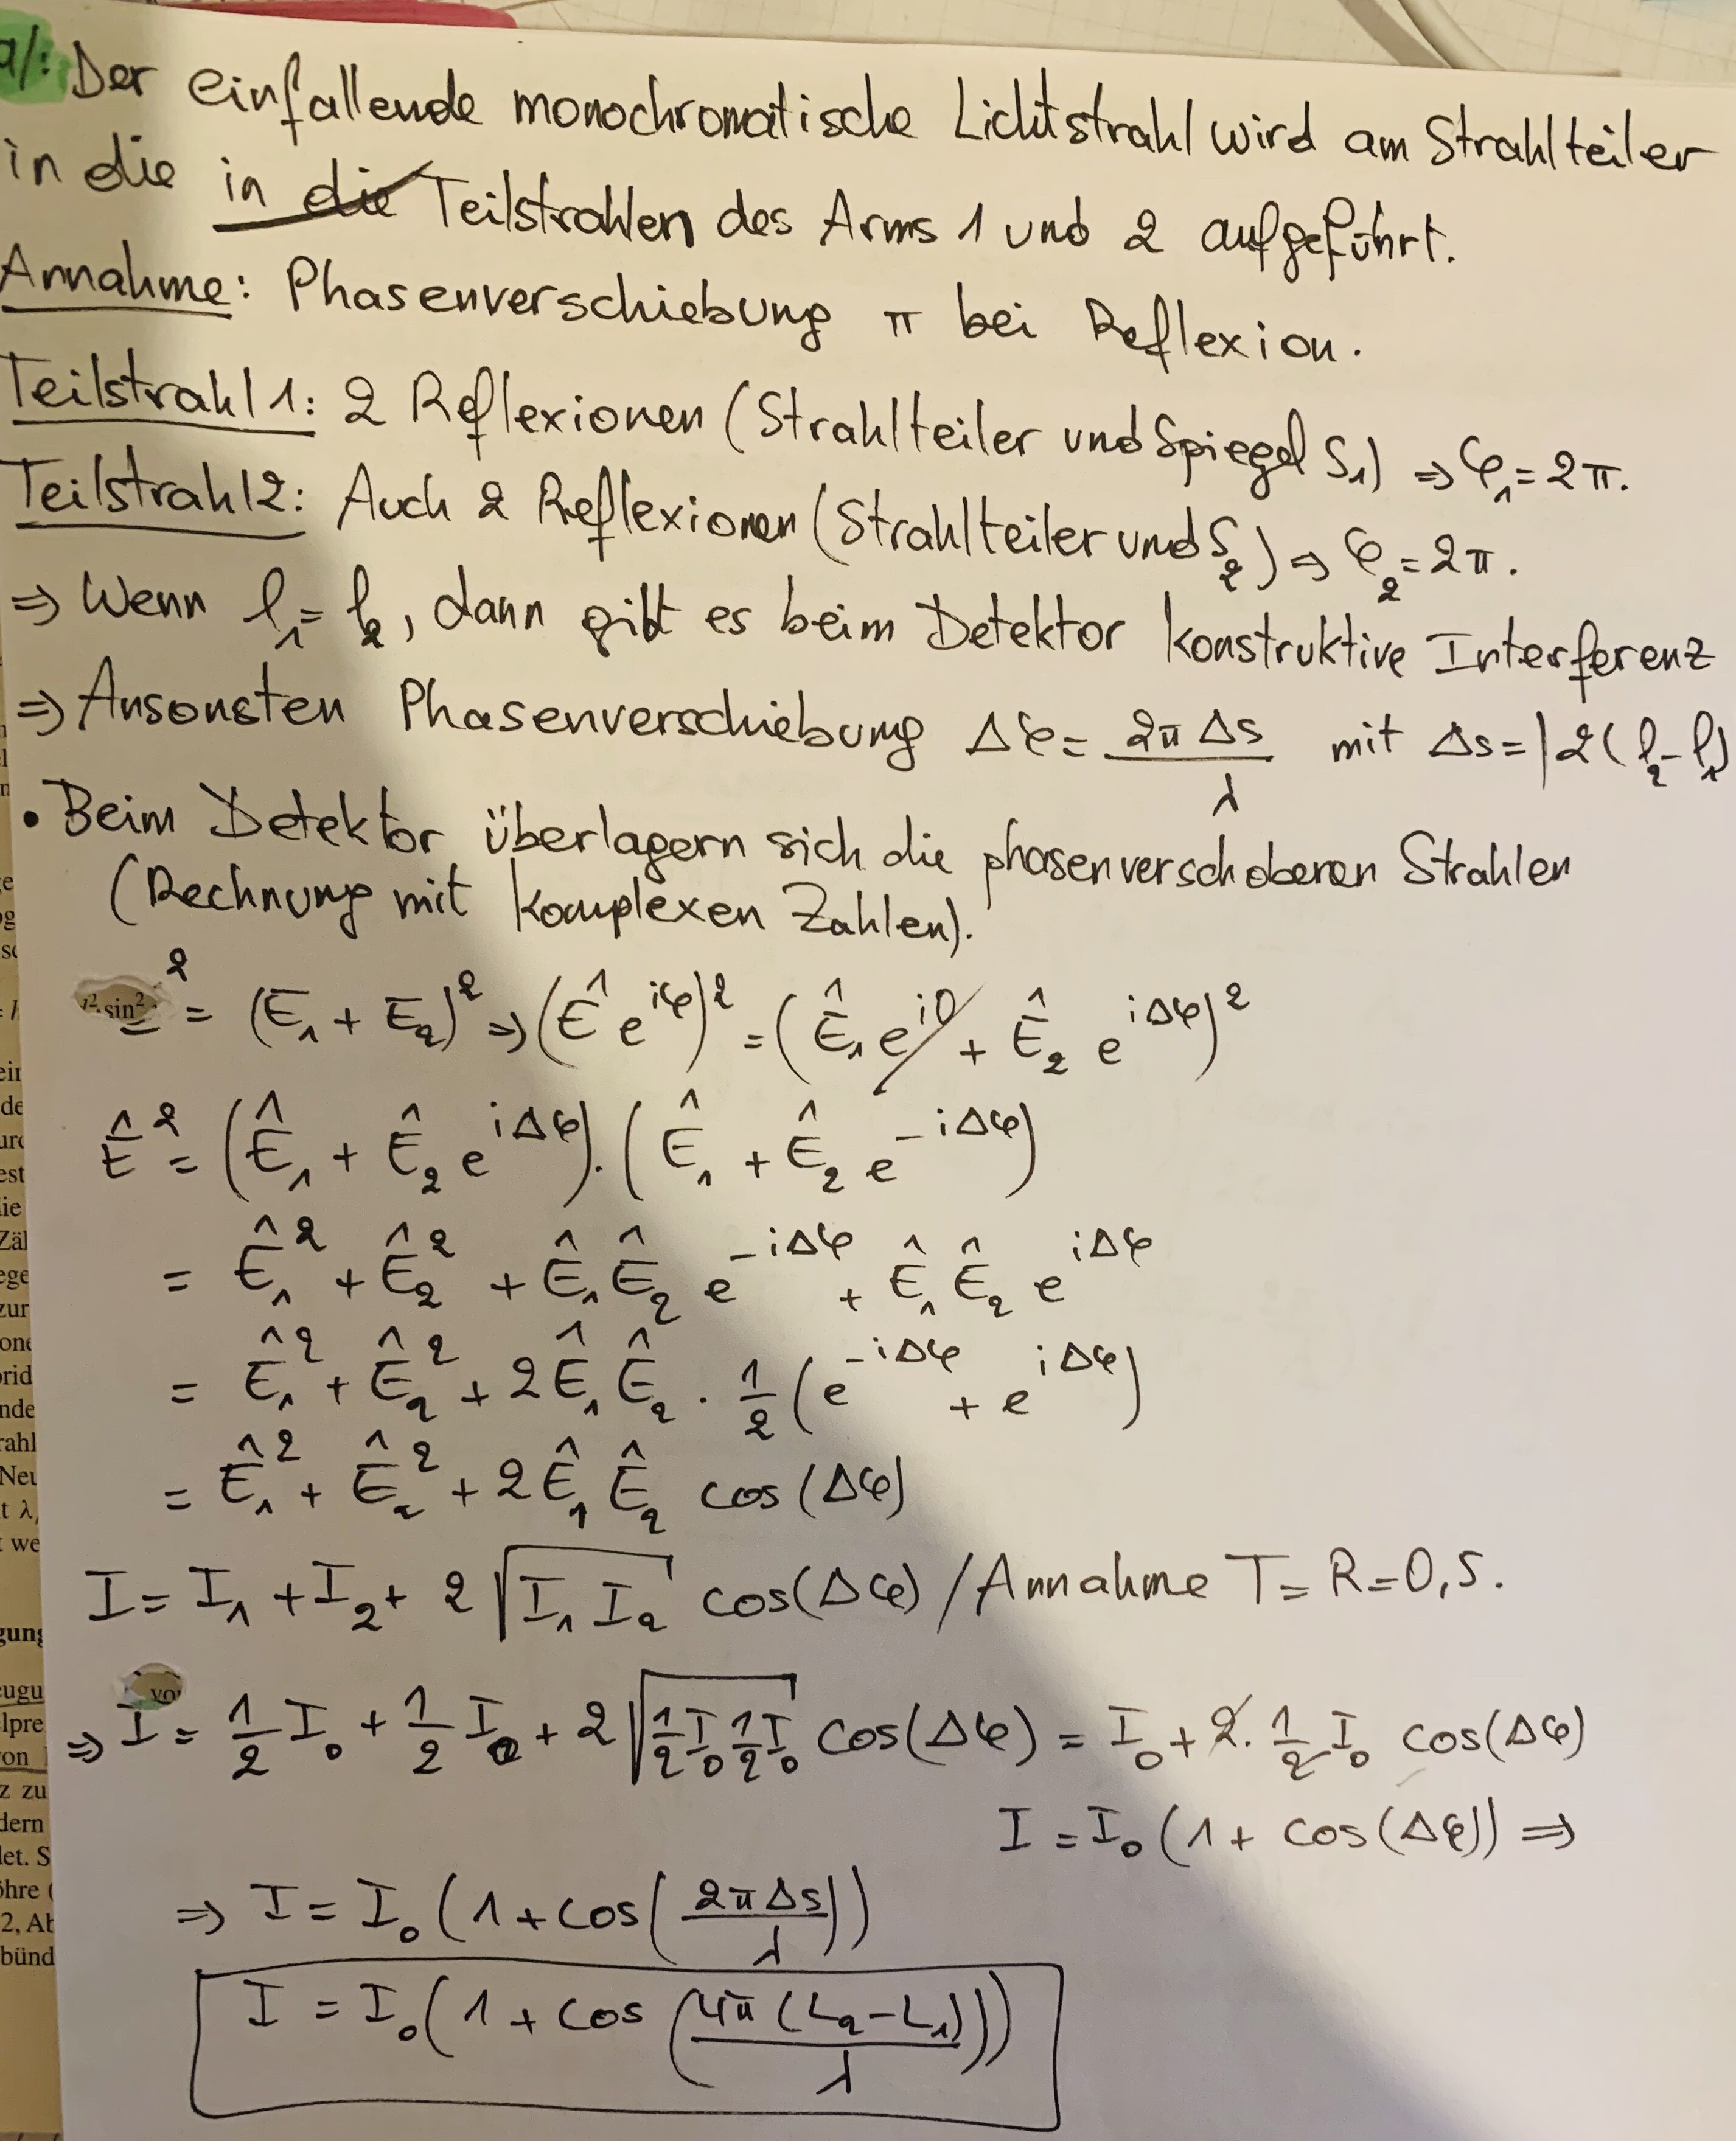 a/: Der einfallende monochromatische Lichtstrahl wird am Strahlteiler
in die in die Teilstrahlen des Arms 1 und 2 aufgeführt.
Annahme: Phasenverschiebung π bei Reflexion.
Teilstrahl 1: 2 Reflexionen (Strahlteiler und Spiegel S₁) ⇒ φ₁ = 2π.
Teilstrahl 2: Auch 2 Reflexionen (Strahlteiler und S₂) ⇒ φ₂ = 2π.
⇒ Wenn l₁ = l₂, dann gibt es beim Detektor konstruktive Interferenz
⇒ Ansonsten Phasenverschiebung Δφ = 2π Δs / λ mit Δs = |2(l₂ - l₁)
• Beim Detektor überlagern sich die phasenverschobenen Strahlen
(Rechnung mit komplexen Zahlen).
² = (E₁ + E₂)² ⇒ (Ê e^{iφ})² = (Ê₁ e^{i0} + Ê₂ e^{iΔφ})²
Ê² = (Ê₁ + Ê₂ e^{iΔφ}) · (Ê₁ + Ê₂ e^{-iΔφ})
= Ê₁² + Ê₂² + Ê₁ Ê₂ e^{-iΔφ} + Ê₁ Ê₂ e^{iΔφ}
= Ê₁² + Ê₂² + 2 Ê₁ Ê₂ · 1/2 (e^{-iΔφ} + e^{iΔφ})
= Ê₁² + Ê₂² + 2 Ê₁ Ê₂ cos(Δφ)
I = I₁ + I₂ + 2 √(I₁ I₂) cos(Δφ) / Annahme T = R = 0,5.
⇒ I = 1/2 I₀ + 1/2 I₀ + 2 √(1/2 I₀ 1/2 I₀) cos(Δφ) = I₀ + 2 · 1/2 I₀ cos(Δφ)
I = I₀ (1 + cos(Δφ)) ⇒
⇒ I = I₀ (1 + cos(2π Δs / λ))
I = I₀ (1 + cos(4π (L₂ - L₁) / λ))